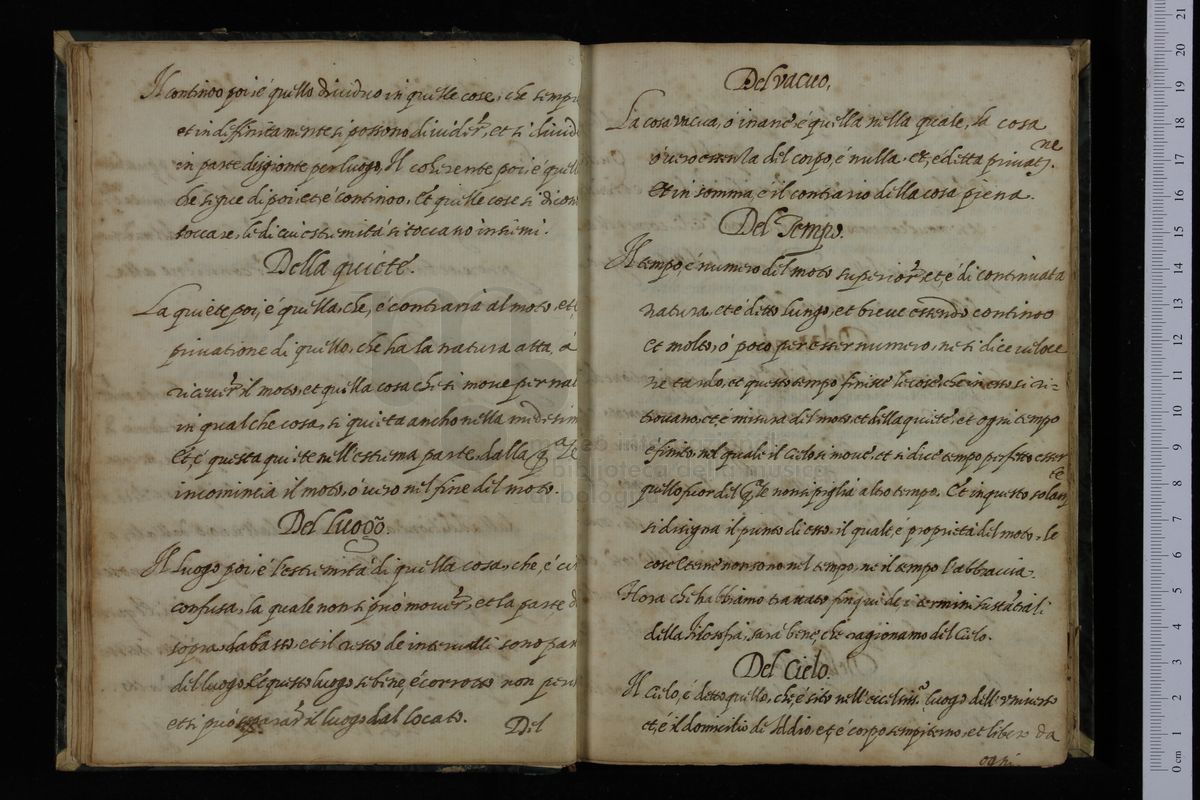 Il continoo poi, è quello dividuo in quelle cose, che sempr
et indiffinitamente si possono divider, et si divid
in parte desgionte per luogo, Il coherente poi, è quell
che segue di poi, et è continoo, Et quelle cose si dicon
toccare, le di cui estremità si toccano insiemi.
Della quiete.
La quiete poi, è quella, che, è contraria al moto, et
privatione di quello, che ha la natura atta, à
ricever il moto, et quella cosa che si move per nat
in qualche cosa, si quieta ancho nella medesim
Et, è questa quiete nell'estrema parte, dalla qle
incomincia il moto, ò vero nel fine del moto.
Del luogo.
Il luogo poi, è l'estremità di quella cosa, che, è ci
confusa, la quale non si può mover, et la parte d
sopra, da basso, et il resto de intervalli sono par
del luogo, Et questo luogo se bene, è corroto non per
et si può separar il luogo dal locato.
Del
Del vacuo,
La cosa vacua, ò inane, è quella nella quale, la cosa
ò vero essentia del corpo, è nulla, et, è detta privatne.
Et in somma, è il contrario della cosa piena.
Del Tempo.
Il tempo, è numero del moto superior, et, è di continuata
natura, et è detto lungo, et breve essendo continoo
Et molto, ò poco per esser numero, ne si dice veloce
ne tardo, et questo tempo finisce le cose, che in esso si ri=
trovano, et, è misura del moto, et della quiete, et ogni tempo
è finito, nel quale il Cielo si move, et si dice tempo perfetto esser
quello fuor del qle non si piglia altro tempo. Et in questo solamte
si disegna il punto di esso, il quale, è proprietà del moto, le
cose Eterne non sono nel tempo, ne il tempo l'abbraccia.
Hora che habbiamo trattato fin qui de i termini sustatiali
della filosofia, sarà bene, che ragionamo del Cielo.
Del Cielo.
Il Cielo, è detto quello, che, è sito nell'eccelmo luogo dell'universo
et, è il domicilio de Iddio, et, è corpo sempiterno, et libero da
ogni
museo internazionale
biblioteca della musica
bologna
0 cm 1 2 3 4 5 6 7 8 9 10 11 12 13 14 15 16 17 18 19 20 21